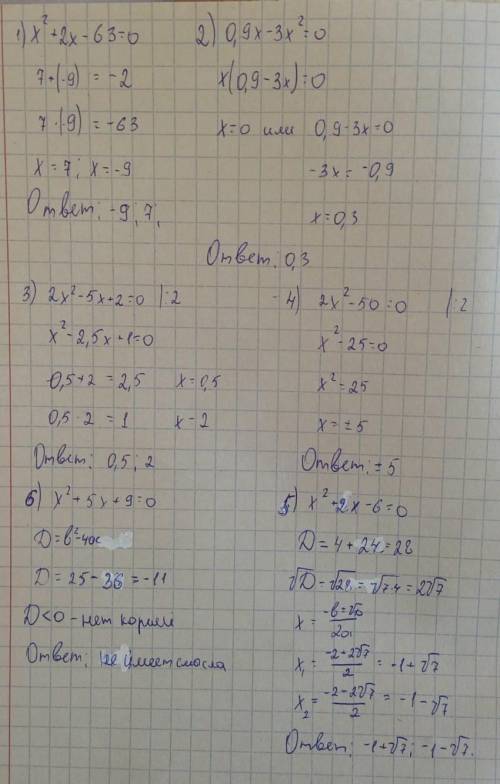 1) x²+2x-63=0
7+(-9) = -2
7·(-9) = -63
x = 7; x=-9
Ответ: -9; 7;
2) 0,9x-3x²=0
x(0,9-3x)=0
x=0 или 0,9-3x=0
-3x = -0,9
x=0,3
Ответ: 0,3
3) 2x²-5x+2=0 |:2
x²-2,5x+1=0
0,5+2 = 2,5 x=0,5
0,5·2 = 1 x=2
Ответ: 0,5; 2
4) 2x²-50=0 |:2
x²-25=0
x²=25
x=±5
Ответ: ±5
6) x²+5x+9=0
D=b²-4ac
D=25-36=-11
D<0 - нет корней
Ответ: не имеет смысла
5) x²+2x-6=0
D=4+24=28
√D=√28=√7·4=2√7
x = -b±√D / 2a
x₁ = -2+2√7 / 2 = -1+√7
x₂ = -2-2√7 / 2 = -1-√7
Ответ: -1+√7; -1-√7.